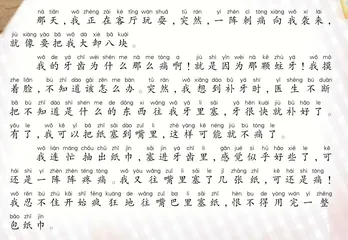 nà tiān wǒ zhèng zài kè tīng wán shuǎ tū rán yí zhèn cì tòng xiàng wǒ xí lái
那天，我正在客厅玩耍，突然，一阵刺痛向我袭来，
jiù xiàng yào bǎ wǒ dà xiè bā kuài
就像要把我大卸八块。
wǒ de yá chǐ wèi shén me nà me tòng a jiù shì yīn wèi nà kē zhù yá wǒ mō
我的牙齿为什么那么痛啊！就是因为那颗蛀牙！我摸
zhe liǎn bù zhī dào gāi zěn me bàn tū rán wǒ xiǎng dào bǔ yá shí yī shēng bú duàn
着脸，不知道该怎么办。突然，我想到补牙时，医生不断
bǎ bù zhī dào shì shén me de dōng xi wǎng wǒ yá lǐ sāi yá hěn kuài jiù bǔ hǎo le
把不知道是什么的东西往我牙里塞，牙很快就补好了。
yǒu le wǒ kě yǐ bǎ zhǐ sāi dào zuǐ lǐ zhè yàng kě néng jiù bú tòng le
有了，我可以把纸塞到嘴里，这样可能就不痛了。
wǒ lián máng chōu chū zhǐ jīn sāi jìn yá chǐ lǐ gǎn jué sì hū hǎo xiē le kě
我连忙抽出纸巾，塞进牙齿里，感觉似乎好些了，可
hái shì yí zhèn zhèn téng tòng wǒ yòu wǎng zuǐ lǐ sāi le jǐ zhāng zhǐ hái shì tòng
还是一阵阵疼痛。我又往嘴里塞了几张纸，还是痛！
wǒ rěn bú zhù kāi shǐ fēng kuáng de wǎng zuǐ ba lǐ sāi zhǐ hèn bu de yòng wán yì zhěng
我忍不住开始疯狂地往嘴巴里塞纸，恨不得用完一整
bāo zhǐ jīn
包纸巾。